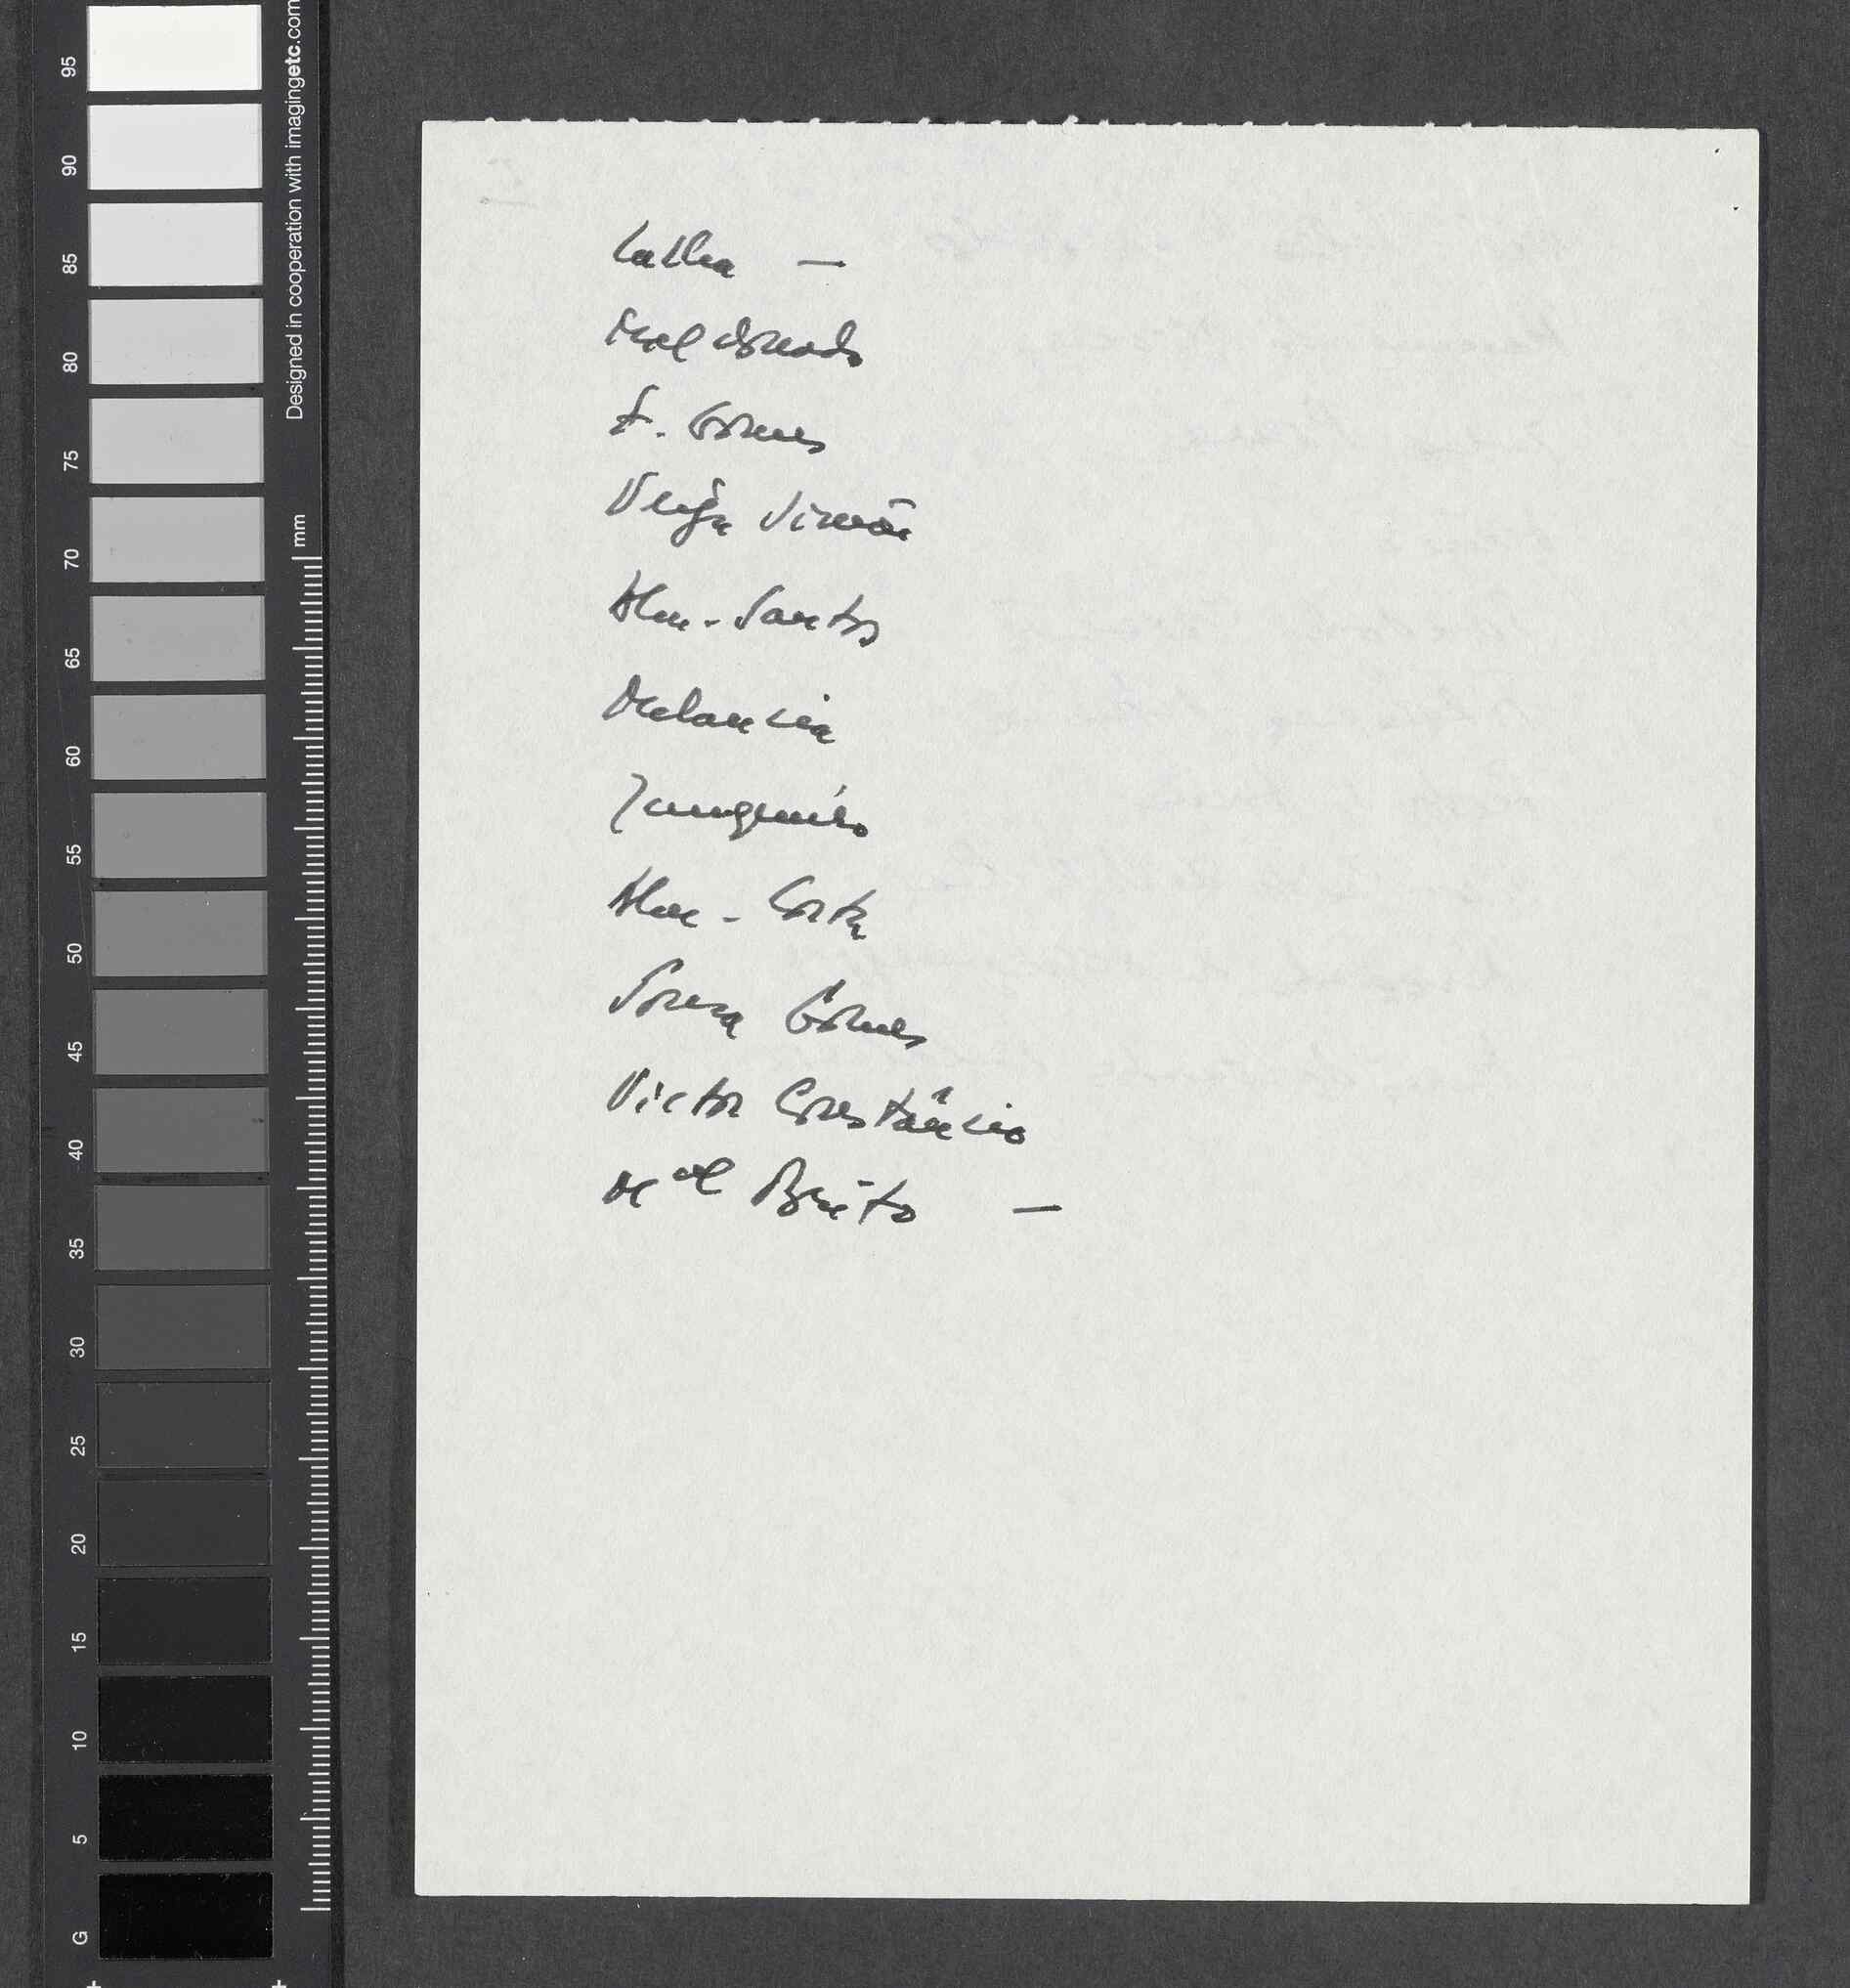 Veiga Simão
Alm. Santos
Melancia
Alm. Costa
Sousa Gomes
Victor Constâncio
Mel Brito —
F. Gomes
95
90
85
80
75
70
65
60
55
50
45
40
35
30
25
20
15
10
5
G
Designed in cooperation with imagingetc.com
mm